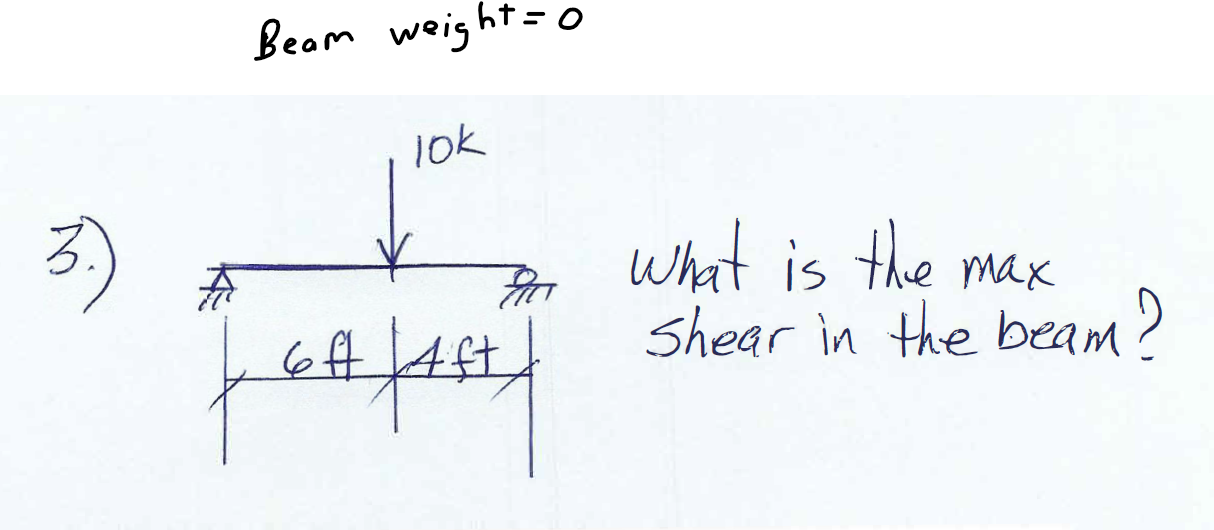 Beam weight = 0
10k
3.)
What is the max
shear in the beam?
6 ft 4 ft